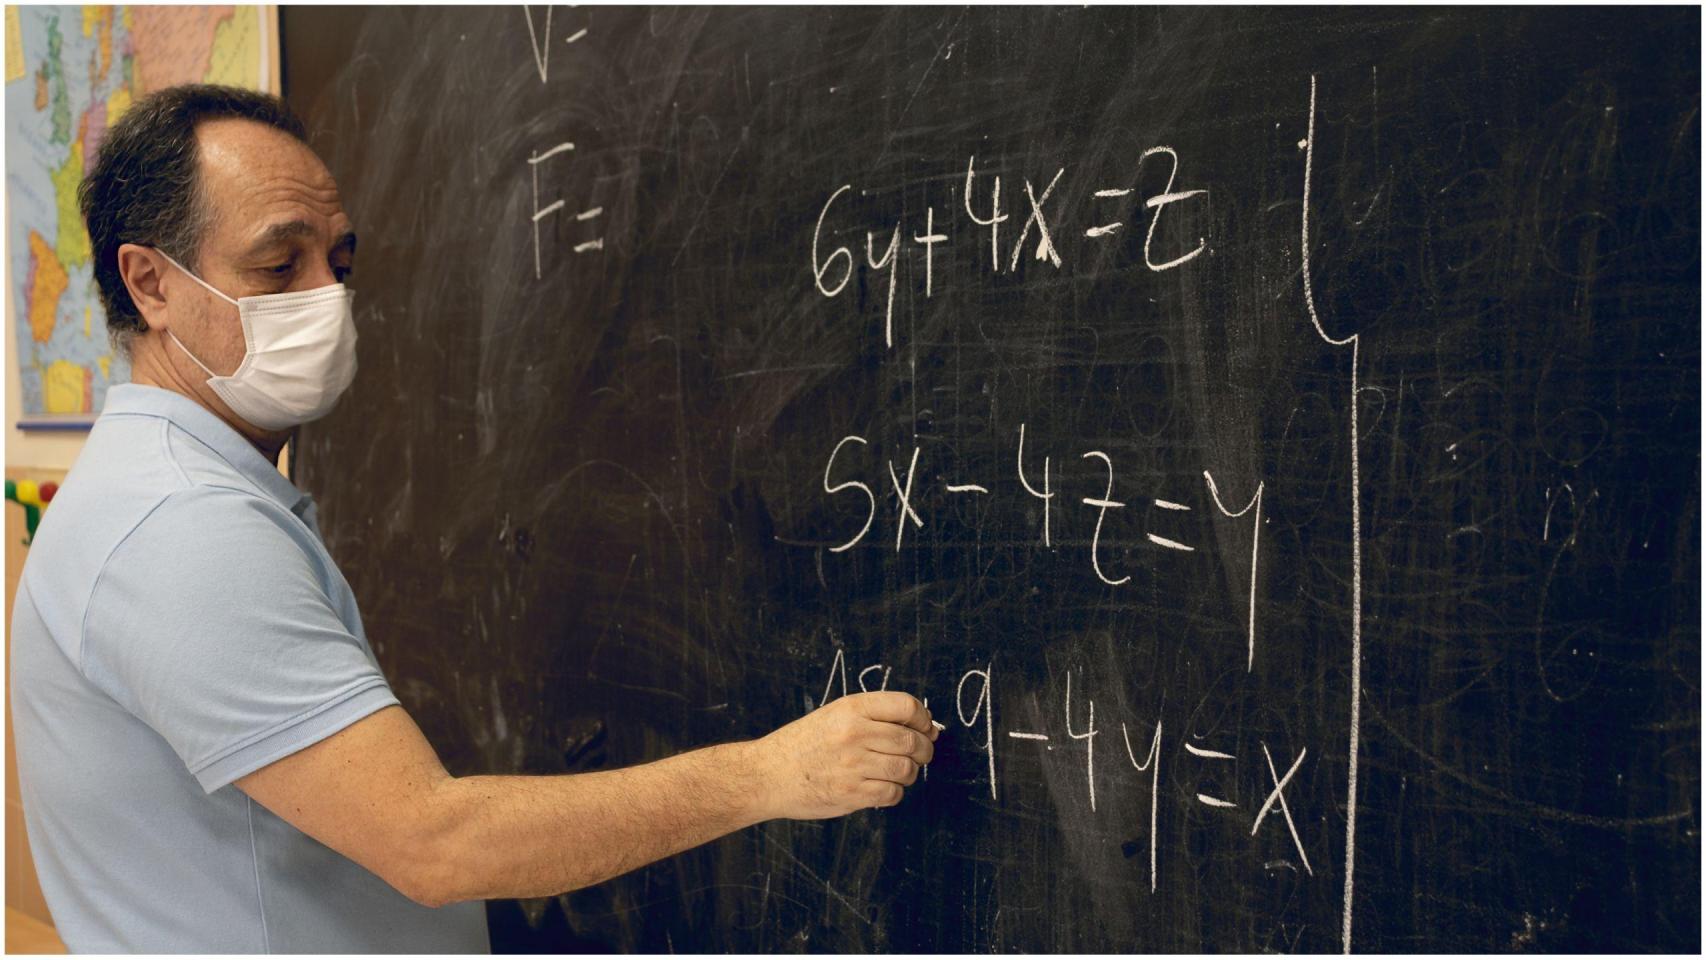 V=
F=
6y+4x=z
5x-4z=y
18+9-4y=x